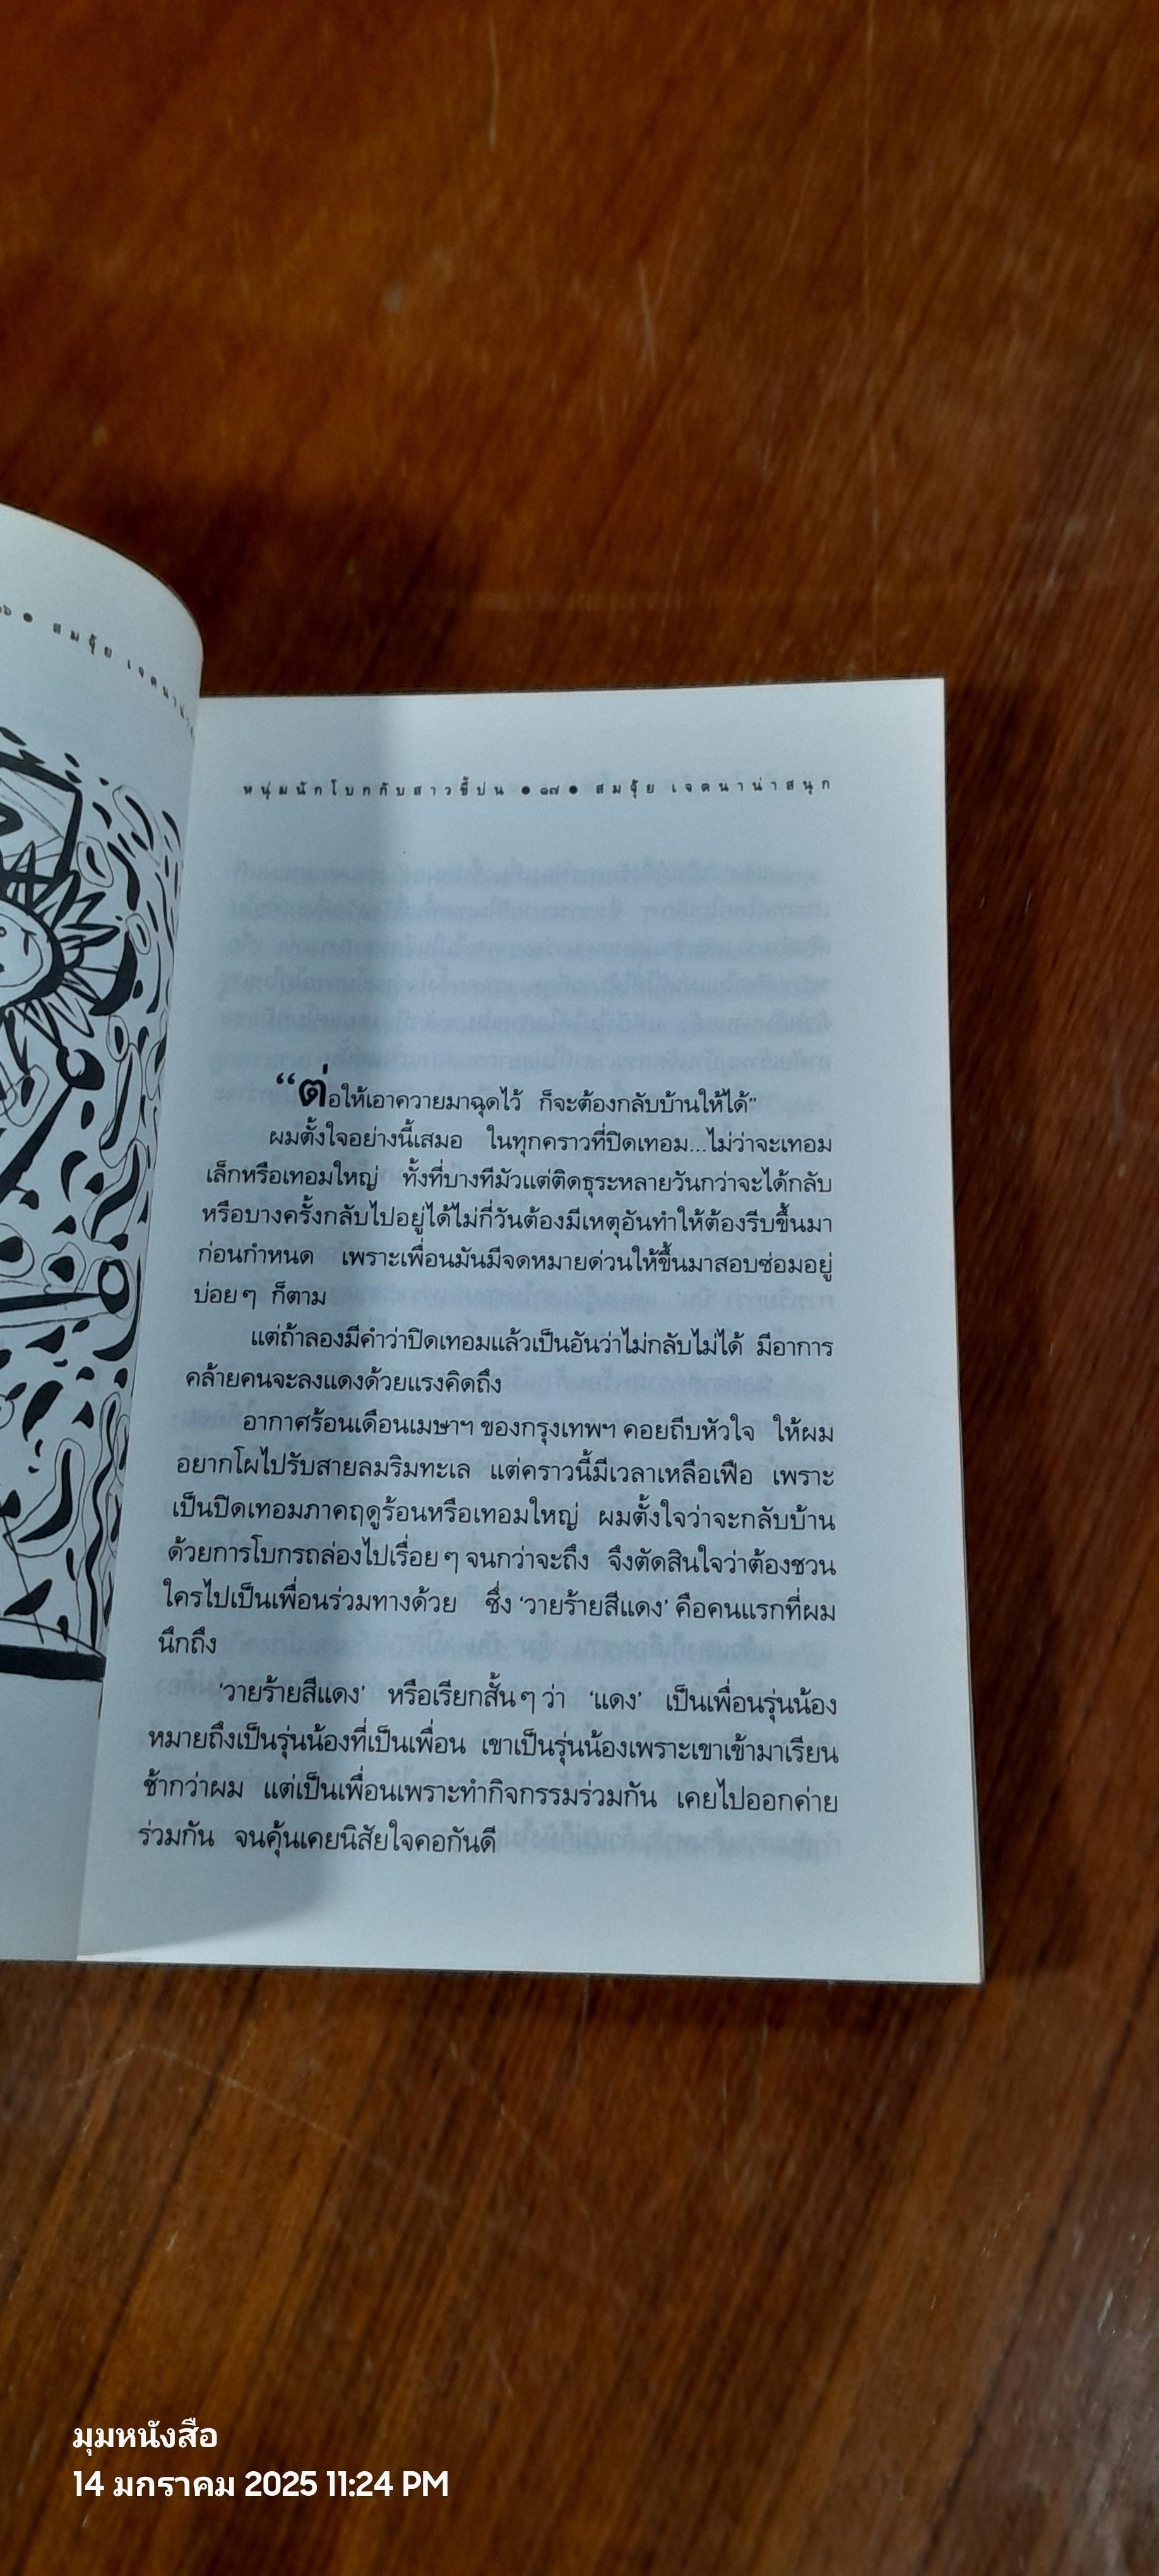 ๖ ● สมจุ้ย เจตนาน่า
หนุ่มนักโบกกับสาวขี้บ่น ● ๑๗ ● สมจุ้ย เจตนาน่าสนุก
“ต่อให้เอาควายมาฉุดไว้ ก็จะต้องกลับบ้านให้ได้”
ผมตั้งใจอย่างนี้เสมอ ในทุกคราวที่ปิดเทอม...ไม่ว่าจะเทอม
เล็กหรือเทอมใหญ่ ทั้งที่บางทีมัวแต่ติดธุระหลายวันกว่าจะได้กลับ
หรือบางครั้งกลับไปอยู่ได้ไม่กี่วันต้องมีเหตุอันทำให้ต้องรีบขึ้นมา
ก่อนกำหนด เพราะเพื่อนมันมีจดหมายด่วนให้ขึ้นมาสอบซ่อมอยู่
บ่อยๆ ก็ตาม
แต่ถ้าลองมีคำว่าปิดเทอมแล้วเป็นอันว่าไม่กลับไม่ได้ มีอาการ
คล้ายคนจะลงแดงด้วยแรงคิดถึง
อากาศร้อนเดือนเมษาฯ ของกรุงเทพฯ คอยถีบหัวใจ ให้ผม
อยากโผไปรับสายลมริมทะเล แต่คราวนี้มีเวลาเหลือเฟือ เพราะ
เป็นปิดเทอมภาคฤดูร้อนหรือเทอมใหญ่ ผมตั้งใจว่าจะกลับบ้าน
ด้วยการโบกรถล่องไปเรื่อยๆ จนกว่าจะถึง จึงตัดสินใจว่าต้องชวน
ใครไปเป็นเพื่อนร่วมทางด้วย ซึ่ง ‘วายร้ายสีแดง’ คือคนแรกที่ผม
นึกถึง
‘วายร้ายสีแดง’ หรือเรียกสั้นๆ ว่า ‘แดง’ เป็นเพื่อนรุ่นน้อง
หมายถึงเป็นรุ่นน้องที่เป็นเพื่อน เขาเป็นรุ่นน้องเพราะเขาเข้ามาเรียน
ช้ากว่าผม แต่เป็นเพื่อนเพราะทำกิจกรรมร่วมกัน เคยไปออกค่าย
ร่วมกัน จนคุ้นเคยนิสัยใจคอกันดี
มุมหนังสือ
14 มกราคม 2025 11:24 PM